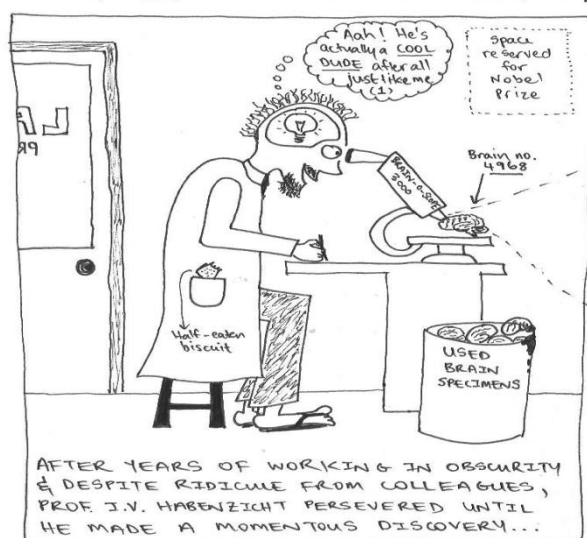 Aah! He's
actually a COOL
DUDE after all
just like me
(1)
Space
reserved
for
Nobel
Prize
Brain no.
4968
BRAIN-O-SCOPE
3000
Half-eaten
biscuit
USED
BRAIN
SPECIMENS
AFTER YEARS OF WORKING IN OBSCURITY
& DESPITE RIDICULE FROM COLLEAGUES,
PROF. I.V. HABENZICHT PERSEVERED UNTIL
HE MADE A MOMENTOUS DISCOVERY...